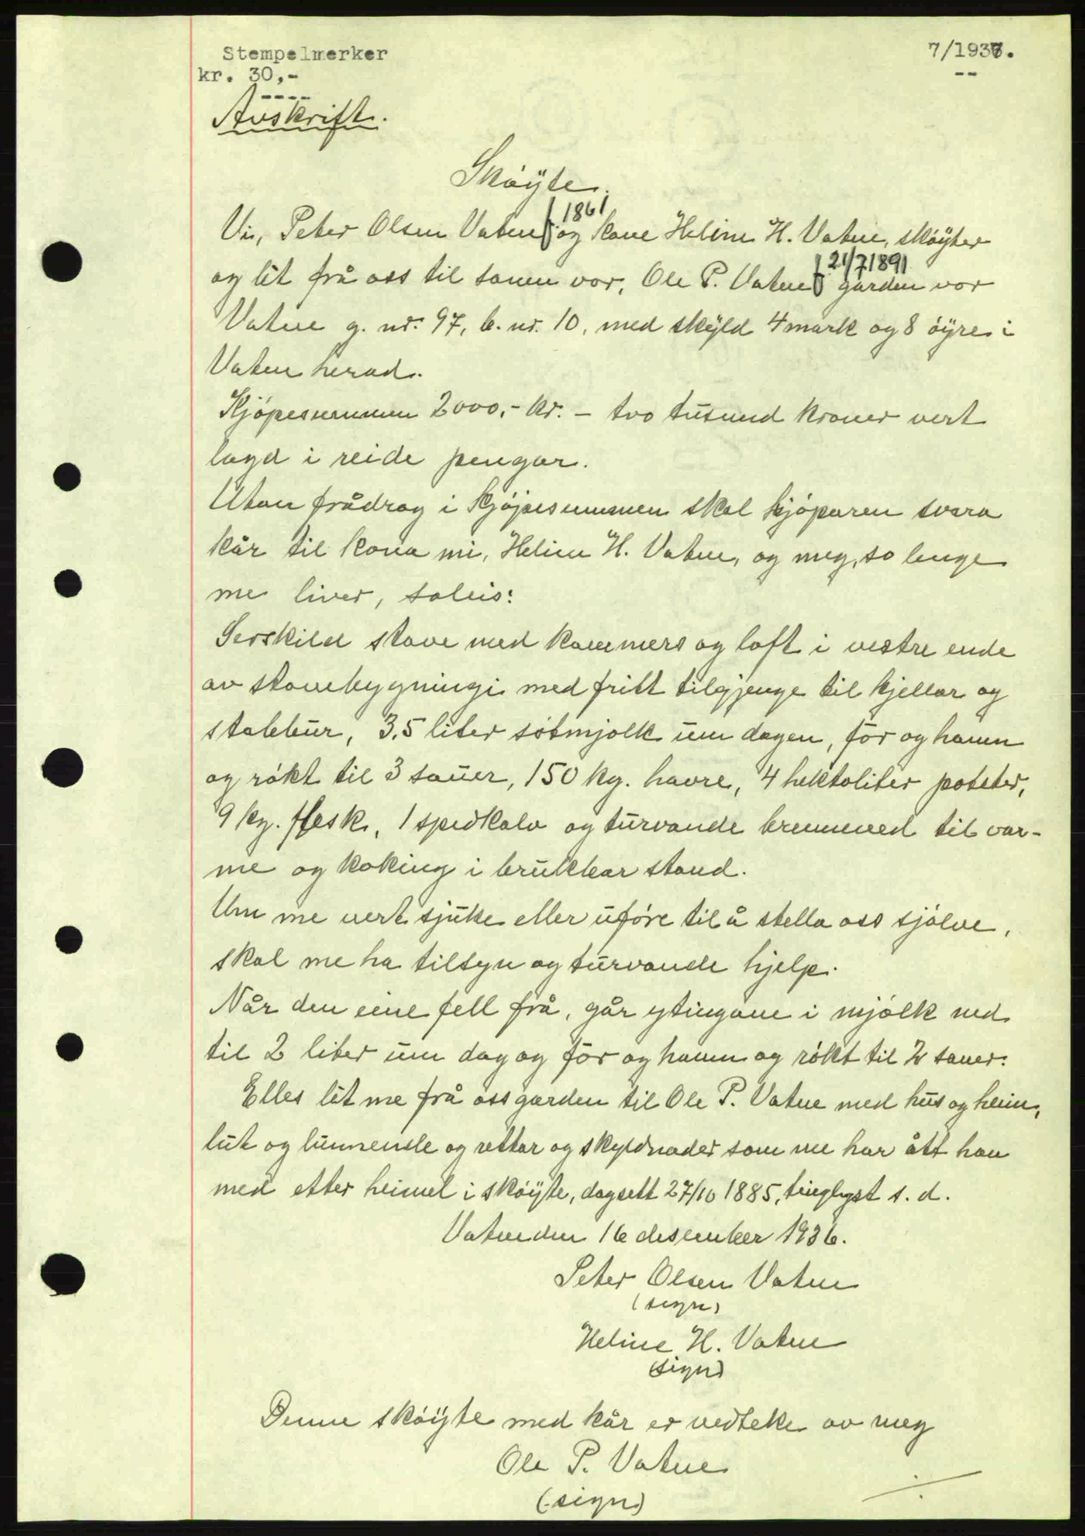 Stempelmerker
kr. 30,-
7/1937.
Avskrift.
Skøyte.
Vi, Peter Olsen Vatne f 1861 og kone Heline H. Vatne, skøyter
og lèt frå oss til sonen vor, Ole P. Vatne f 21/7 1891 garden vor
Vatne g. nr. 97, b. nr. 10, med skyld 4 mark og 8 øyre i
Vatne herad.
Kjøpesummen 2000,- kr. - tvo tusund kroner vert
lagd i reide pengar.
Utan frådrag i kjøpesummen skal kjøparen svara
kår til kona mi, Heline H. Vatne, og meg, so lenge
me liver, soleis:
Serskild stove med kammers og loft i vestre ende
av stovebygningi med fritt tilgjenge til kjellar og
stabbur, 3,5 liter søtmjolk um dagen, fôr og hamn
og røkt til 3 sauer, 150 kg. havre, 4 hektoliter poteter,
9 kg. flesk, 1 spedkalv og turvande brenneved til var-
me og koking i brukbar stand.
Um me vert sjuke eller uføre til å stella oss sjølve,
skal me ha tilsyn og turvande hjelp.
Når den eine fell frå, går ytingane i mjølk ned
til 2 liter um dag og fôr og hamn og røkt til 2 sauer.
Elles lèt me frå oss garden til Ole P. Vatne med hus og heim,
lut og lunnende og rettar og skyldnader som me har ått han
med etter heimel i skøyte, dagsett 27/10 1885, tinglyst s. d.
Vatne den 16 desember 1936.
Peter Olsen Vatne
(sign)
Heline H. Vatne
(sign)
Denne skøyte med kår er vedteke av meg
Ole P. Vatne
(sign)